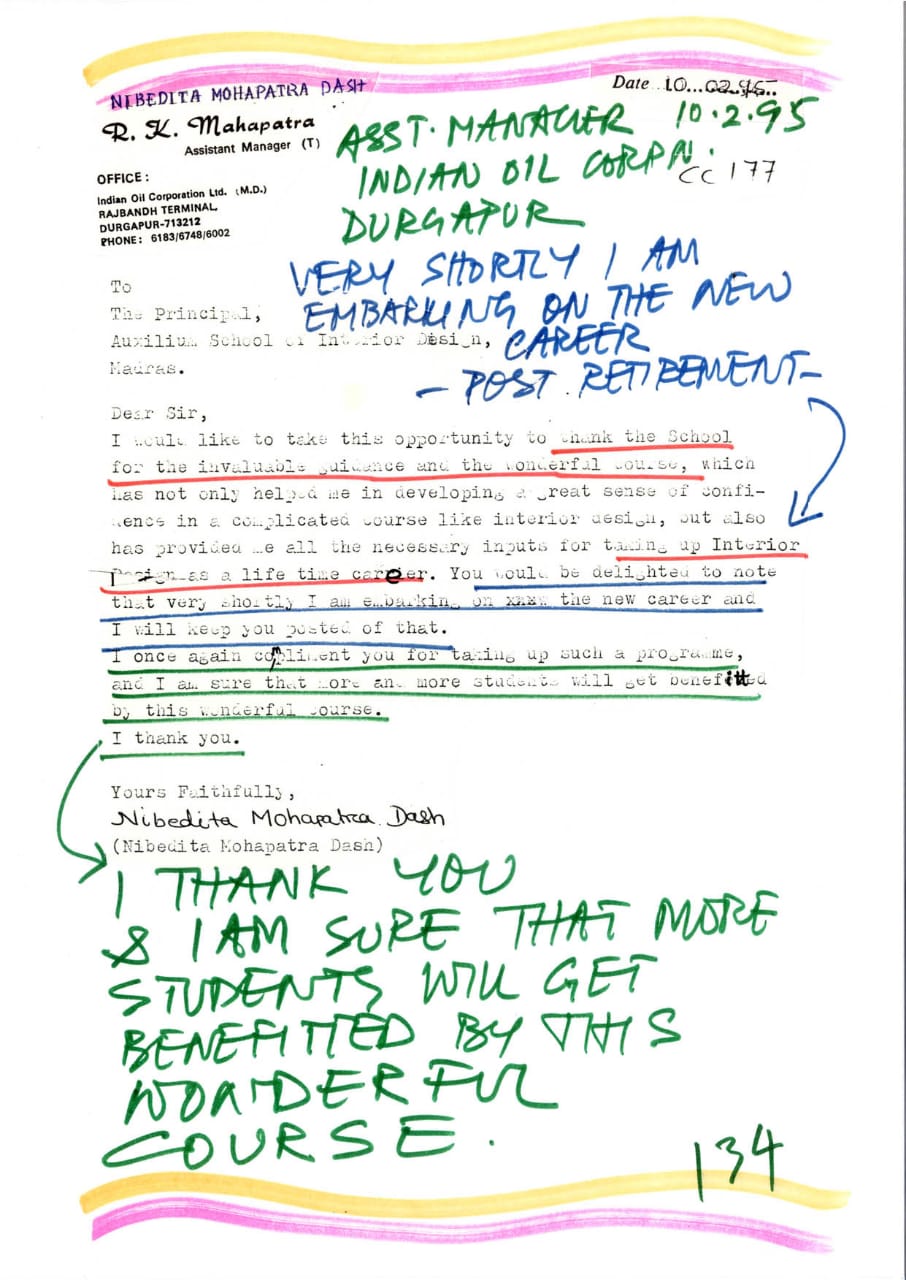 NIBEDITA MOHAPATRA DASH
Date 10...02.95..
R. K. Mahapatra
Assistant Manager (T)
ASST. MANAGER 10.2.95
INDIAN OIL CORPN.
CC 177
DURGAPUR
OFFICE :
Indian Oil Corporation Ltd. (M.D.)
RAJBANDH TERMINAL,
DURGAPUR-713212
PHONE: 6183/6748/6002
VERY SHORTLY I AM
EMBARKING ON THE NEW
CAREER
- POST RETIREMENT -
To
The Principal,
Auxilium School of Interior Design,
Madras.
Dear Sir,
I would like to take this opportunity to thank the School
for the invaluable guidance and the wonderful course, which
has not only helped me in developing a great sense of confi-
dence in a complicated course like interior design, but also
has provided me all the necessary inputs for taking up Interior
Design as a life time career. You would be delighted to note
that very shortly I am embarking on xxxx the new career and
I will keep you posted of that.
I once again compliment you for taking up such a programme,
and I am sure that more and more students will get benefitted
by this wonderful course.
I thank you.
Yours Faithfully,
Nibedita Mohapatra Dash
(Nibedita Mohapatra Dash)
I THANK YOU
& I AM SURE THAT MORE
STUDENTS WILL GET
BENEFITTED BY THIS
WONDERFUL
COURSE.
134